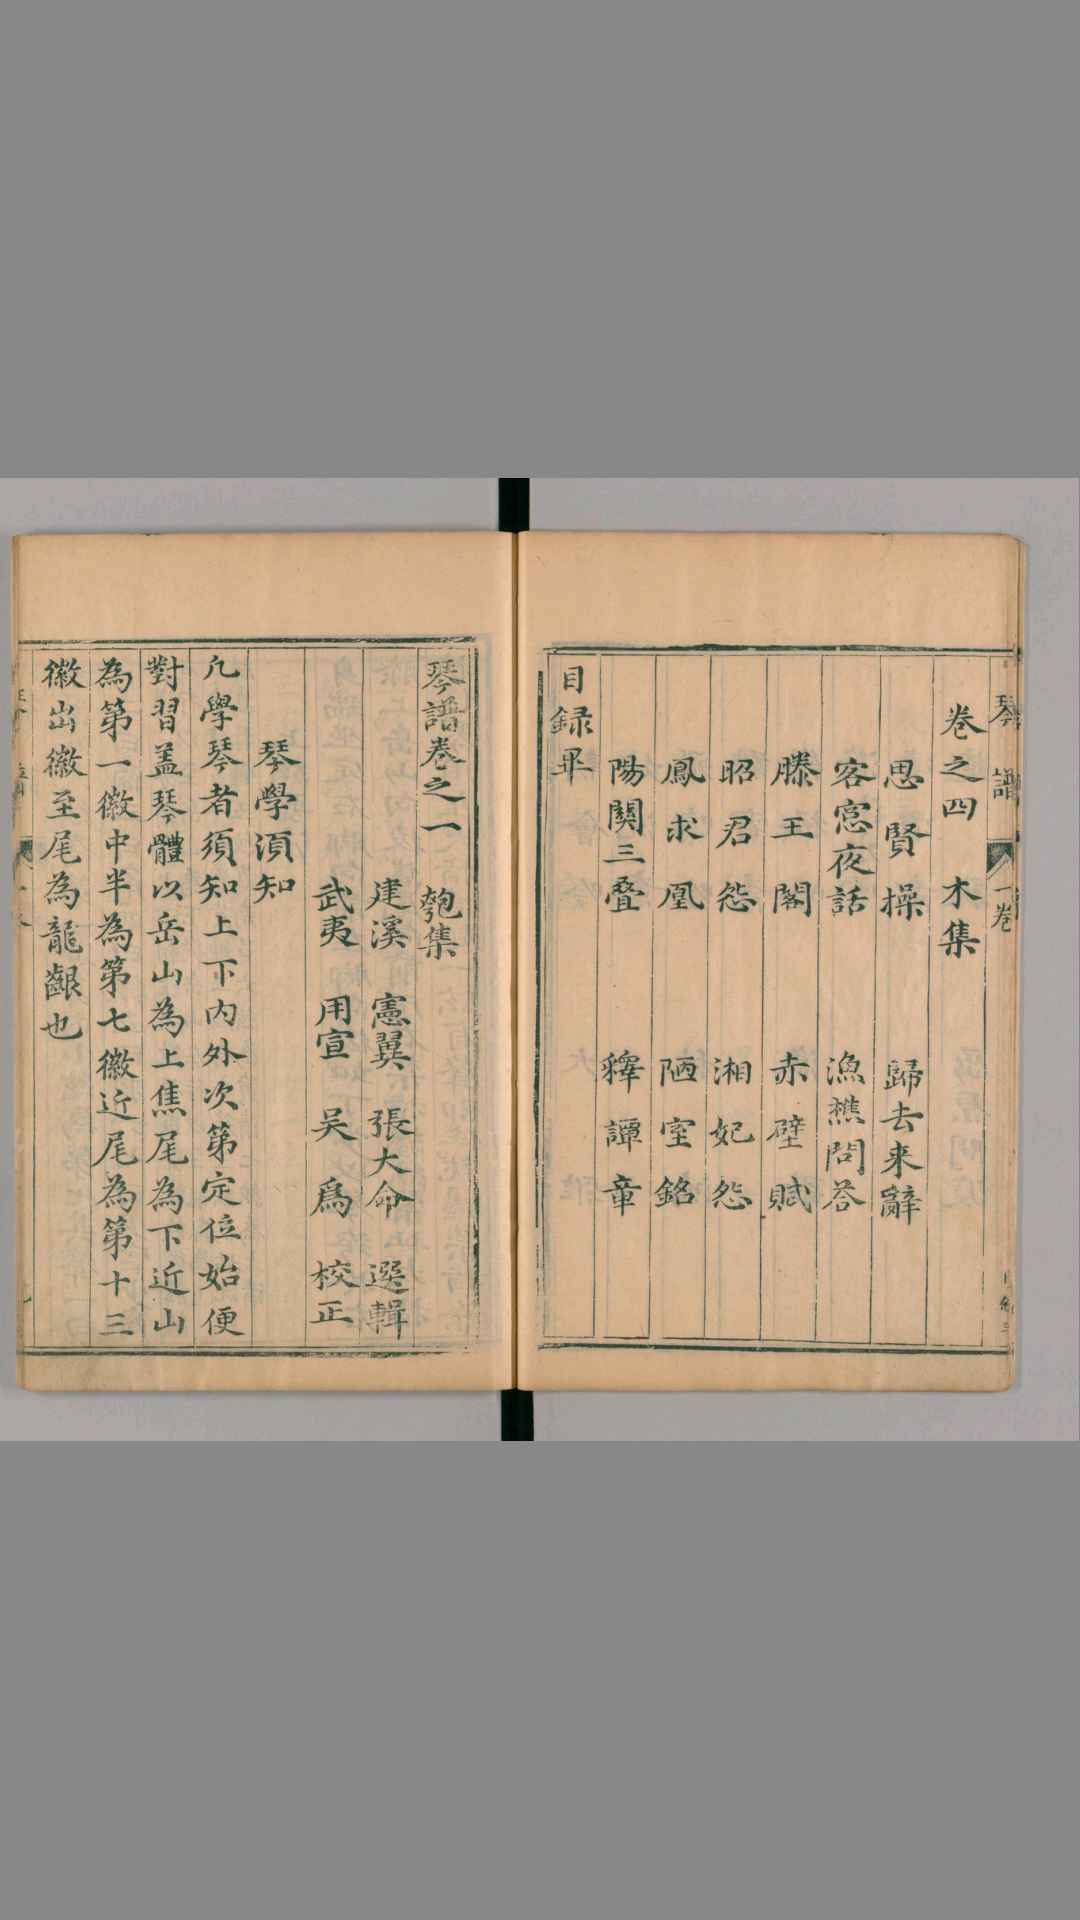 琴譜 一卷
卷之四 木集
思賢操 歸去来辭
客窓夜話 漁樵問荅
滕王閣 赤壁賦
昭君怨 湘妃怨
鳳求凰 陋室銘
陽関三叠 釋譚章
目録畢
琴譜卷之一 匏集
建溪 憲翼 張大命 選輯
武夷 用宣 吴為 校正
琴學湏知
凢學琴者須知上下内外次第定位始便
對習盖琴體以岳山為上焦尾為下近山
為第一徽中半為第七徽近尾為第十三
徽出徽至尾為龍齦也